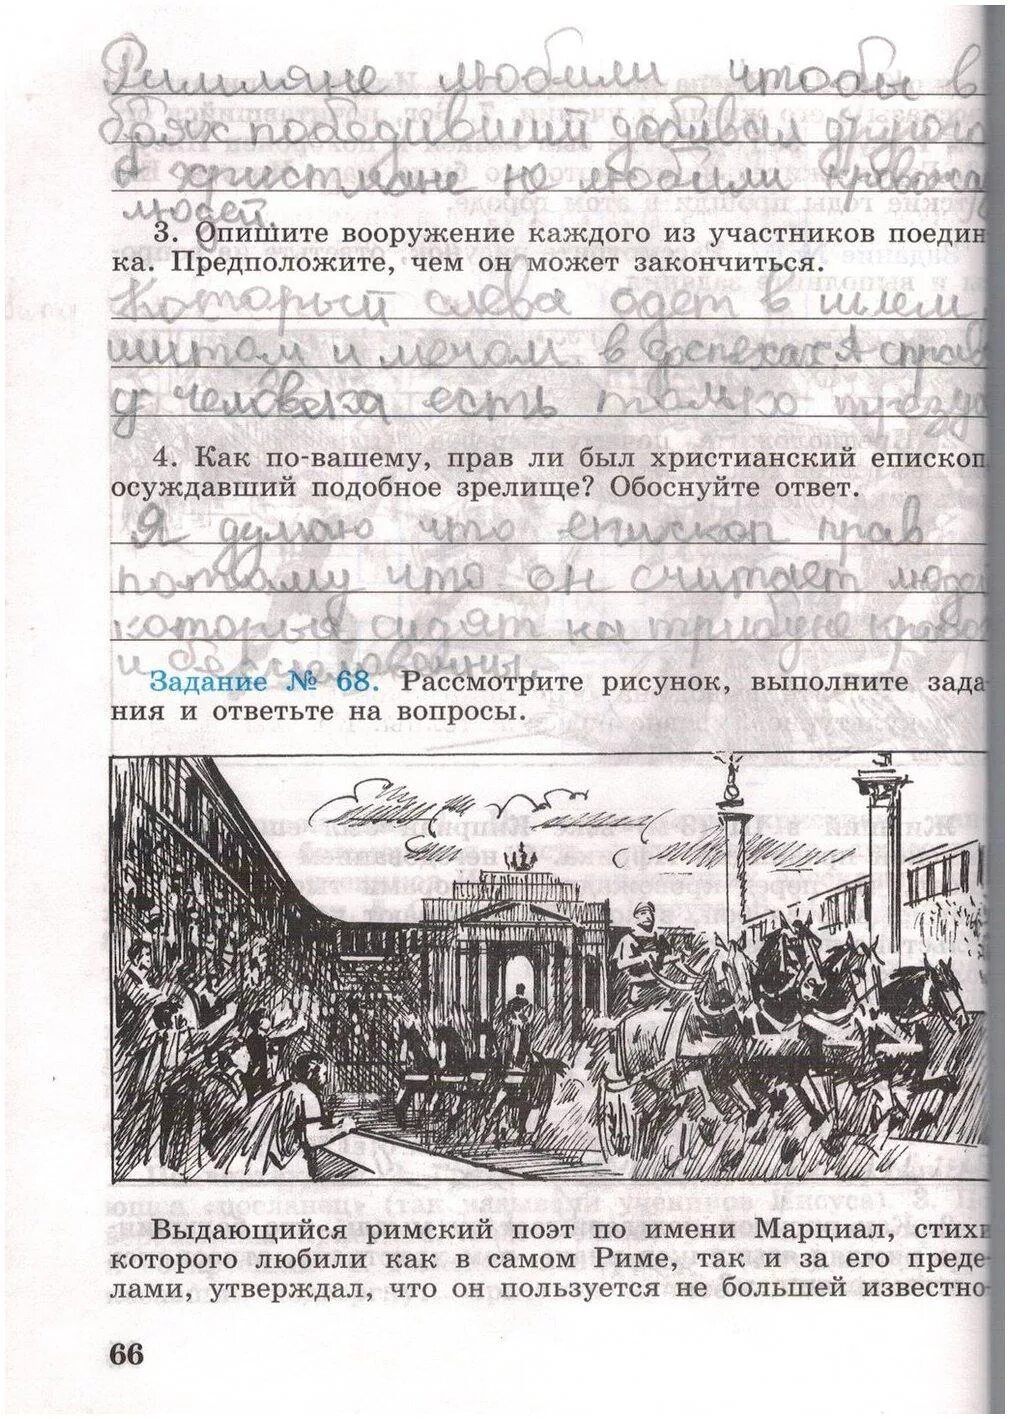 Римляне любили чтобы в
боях победивший добивал другого
а христиане не любили кровожа
людей.
3. Опишите вооружение каждого из участников поедин
ка. Предположите, чем он может закончиться.
Который слева одет в шлем
щитом и мечом в доспехах А справ
у человека есть только трезу
4. Как по-вашему, прав ли был христианский епископ
осуждавший подобное зрелище? Обоснуйте ответ.
Я думаю что епископ прав
потому что он считает людей
которые сидят на трибуне крово
и
Задание № 68. Рассмотрите рисунок, выполните зада
ния и ответьте на вопросы.
Выдающийся римский поэт по имени Марциал, стихи
которого любили как в самом Риме, так и за его преде-
лами, утверждал, что он пользуется не большей известно-
66